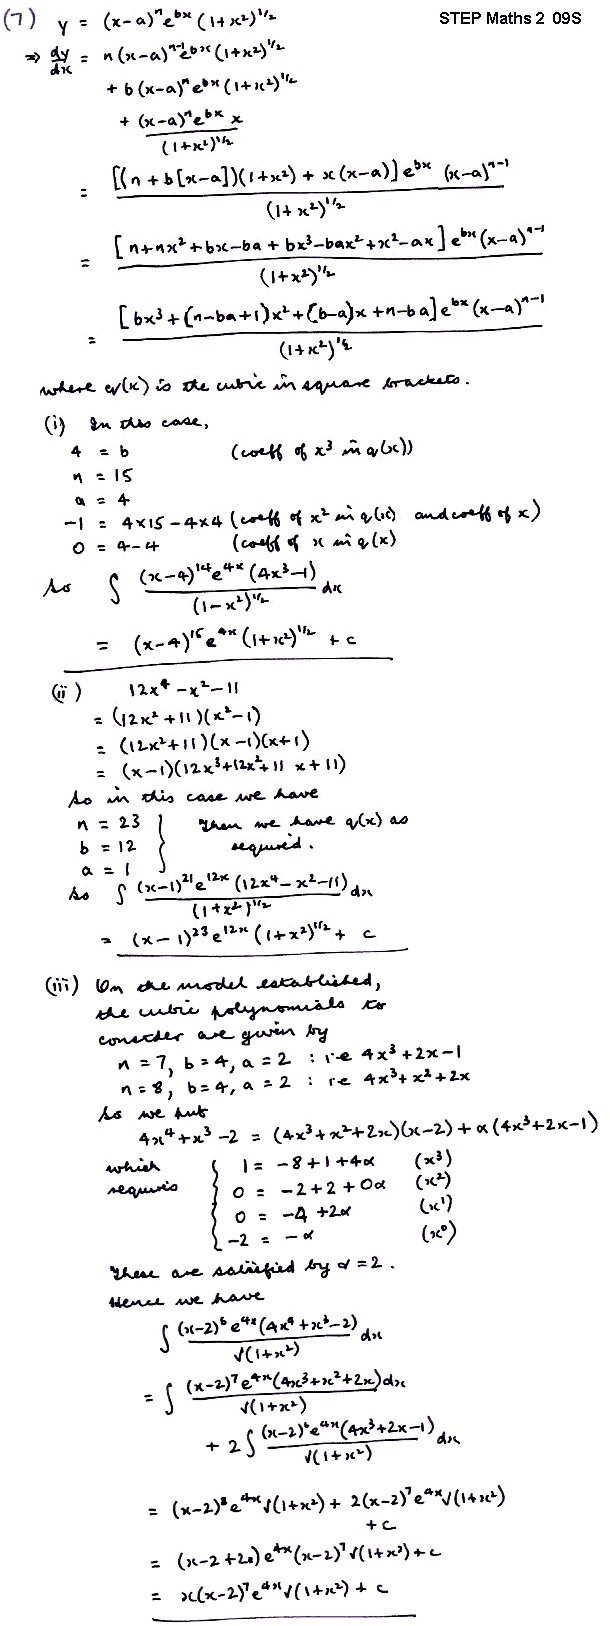 (7) y = (x-a)ⁿe^{bx}(1+x²)^{1/2}
STEP Maths 2 09S
⇒ dy/dx = n(x-a)^{n-1}e^{bx}(1+x²)^{1/2}
+ b(x-a)ⁿe^{bx}(1+x²)^{1/2}
+ (x-a)ⁿe^{bx} x / (1+x²)^{1/2}
= [(n+b[x-a])(1+x²) + x(x-a)]e^{bx} (x-a)^{n-1} / (1+x²)^{1/2}
= [n+nx²+bx-ba+bx³-bax²+x²-ax]e^{bx}(x-a)^{n-1} / (1+x²)^{1/2}
= [bx³+(n-ba+1)x²+(b-a)x+n-ba]e^{bx}(x-a)^{n-1} / (1+x²)^{1/2}
where q(x) is the cubic in square brackets.
(i) In this case,
4 = b (coeff of x³ in q(x))
n = 15
a = 4
-1 = 4×15-4×4 (coeff of x² in q(x) and coeff of x)
0 = 4-4 (coeff of x in q(x)
So ∫ (x-4)^{14}e^{4x}(4x³-1) / (1-x²)^{1/2} dx
= (x-4)^{15}e^{4x}(1+x²)^{1/2} + c
(ii) 12x⁴-x²-11
= (12x²+11)(x²-1)
= (12x²+11)(x-1)(x+1)
= (x-1)(12x³+12x²+11x+11)
So in this case we have
n = 23 } Then we have q(x) as
b = 12 } required.
a = 1 }
So ∫ (x-1)^{21}e^{12x}(12x⁴-x²-11) / (1+x²)^{1/2} dx
= (x-1)^{23}e^{12x}(1+x²)^{1/2} + c
(iii) On the model established,
the cubic polynomials to
consider are given by
n = 7, b = 4, a = 2 : i.e 4x³+2x-1
n = 8, b = 4, a = 2 : ie 4x³+x²+2x
So we put
4x⁴+x³-2 = (4x³+x²+2x)(x-2)+α(4x³+2x-1)
which { 1 = -8+1+4α (x³)
requires { 0 = -2+2+0α (x²)
{ 0 = -4+2α (x¹)
{ -2 = -α (x⁰)
These are satisfied by α = 2.
Hence we have
∫ (x-2)⁶e^{4x}(4x⁴+x³-2) / √(1+x²) dx
= ∫ (x-2)⁷e^{4x}(4x³+x²+2x)dx / √(1+x²)
+ 2∫ (x-2)⁶e^{4x}(4x³+2x-1) / √(1+x²) dx
= (x-2)⁸e^{4x}√(1+x²) + 2(x-2)⁷e^{4x}√(1+x²)
+ c
= (x-2+2)e^{4x}(x-2)⁷√(1+x²)+c
= x(x-2)⁷e^{4x}√(1+x²) + c